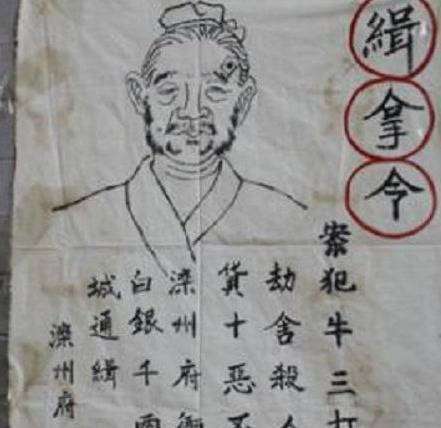 緝拿令
案犯牛三打
劫舍殺人
貨十惡不
滦州府衙
白銀千兩
城通緝
滦州府